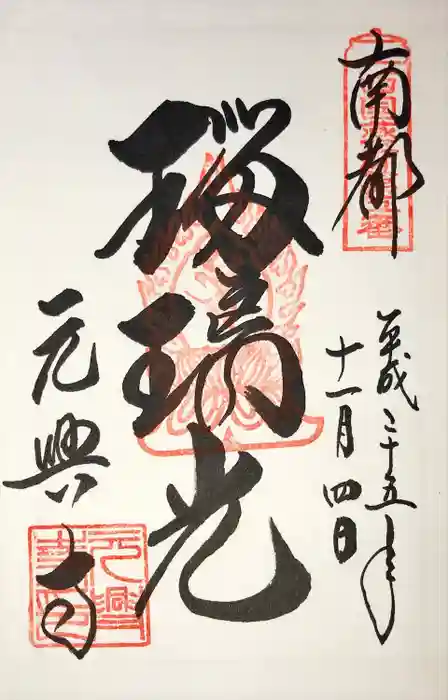 南都
平成二十五年
十一月四日
瑠璃光
元興寺